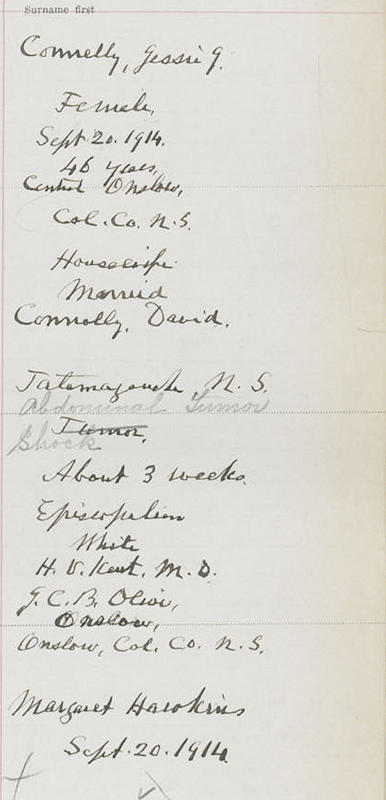 Surname first
Connelly, Jessie G.
Female,
Sept 20. 1914.
46 years,
Central Onslow,
Col. Co. N.S.
Housewife
Married
Connolly, David.
Tatamagouche, N.S.
Abdominal Tumor
Tumor,
Shock
About 3 weeks.
Episcopalian
White
H. V. Kent, M.D.
G. C. B. Olive,
Onslow,
Onslow, Col. Co. N.S.
Margaret Hawkins
Sept. 20. 1914